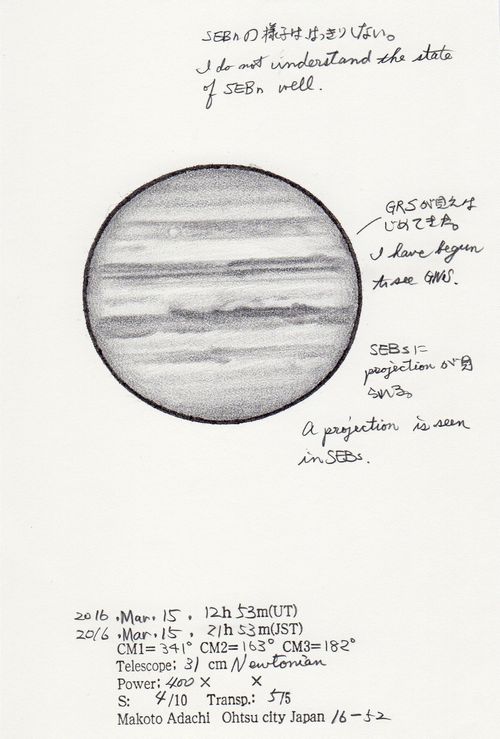 SEBnの様子ははっきりしない。
I do not understand the state
of SEBn well.
GRSが見えは
じめてきた。
I have begun
to see GRS.
SEBsに
projectionが見
られる。
A projection is seen
in SEBs.
2016.Mar.15. 12h 53m(UT)
2016.Mar.15. 21h 53m(JST)
CM1=341° CM2=163° CM3=182°
Telescope; 31 cm Newtonian
Power; 400 × ×
S: 4/10 Transp.: 5/5
Makoto Adachi Ohtsu city Japan 16-52